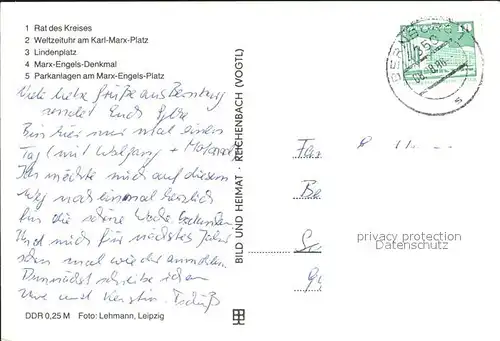 1 Rat des Kreises
2 Weltzeituhr am Karl-Marx-Platz
3 Lindenplatz
4 Marx-Engels-Denkmal
5 Parkanlagen am Marx-Engels-Platz
Viele liebe Grüße aus Bernburg
sendet Euch
Bin hier nur mal einen
Tag (mit Wolfgang +
Ich möchte mich auf diesem
Weg noch einmal herzlich
für die schöne Woche bedanken
Und mich für nächstes Jahr
schon mal wieder anmelden.
Demnächst schreibe ich an
Uwe und Kerstin. Tschüß
DDR 0,25 M Foto: Lehmann, Leipzig
BILD UND HEIMAT · REICHENBACH (VOGTL)
BERNBURG 1
4350
privacy protection
Datenschutz